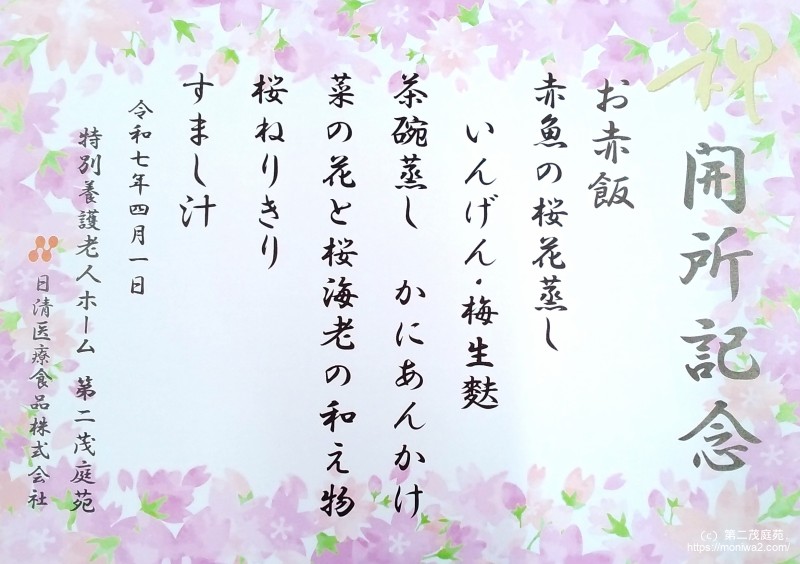 祝
開所記念
お赤飯
赤魚の桜花蒸し
いんげん・梅生麩
茶碗蒸し　かにあんかけ
菜の花と桜海老の和え物
桜ねりきり
すまし汁
令和七年四月一日
特別養護老人ホーム　第二茂庭苑
日清医療食品株式会社
（c）第二茂庭苑
https://moniwa2.com/